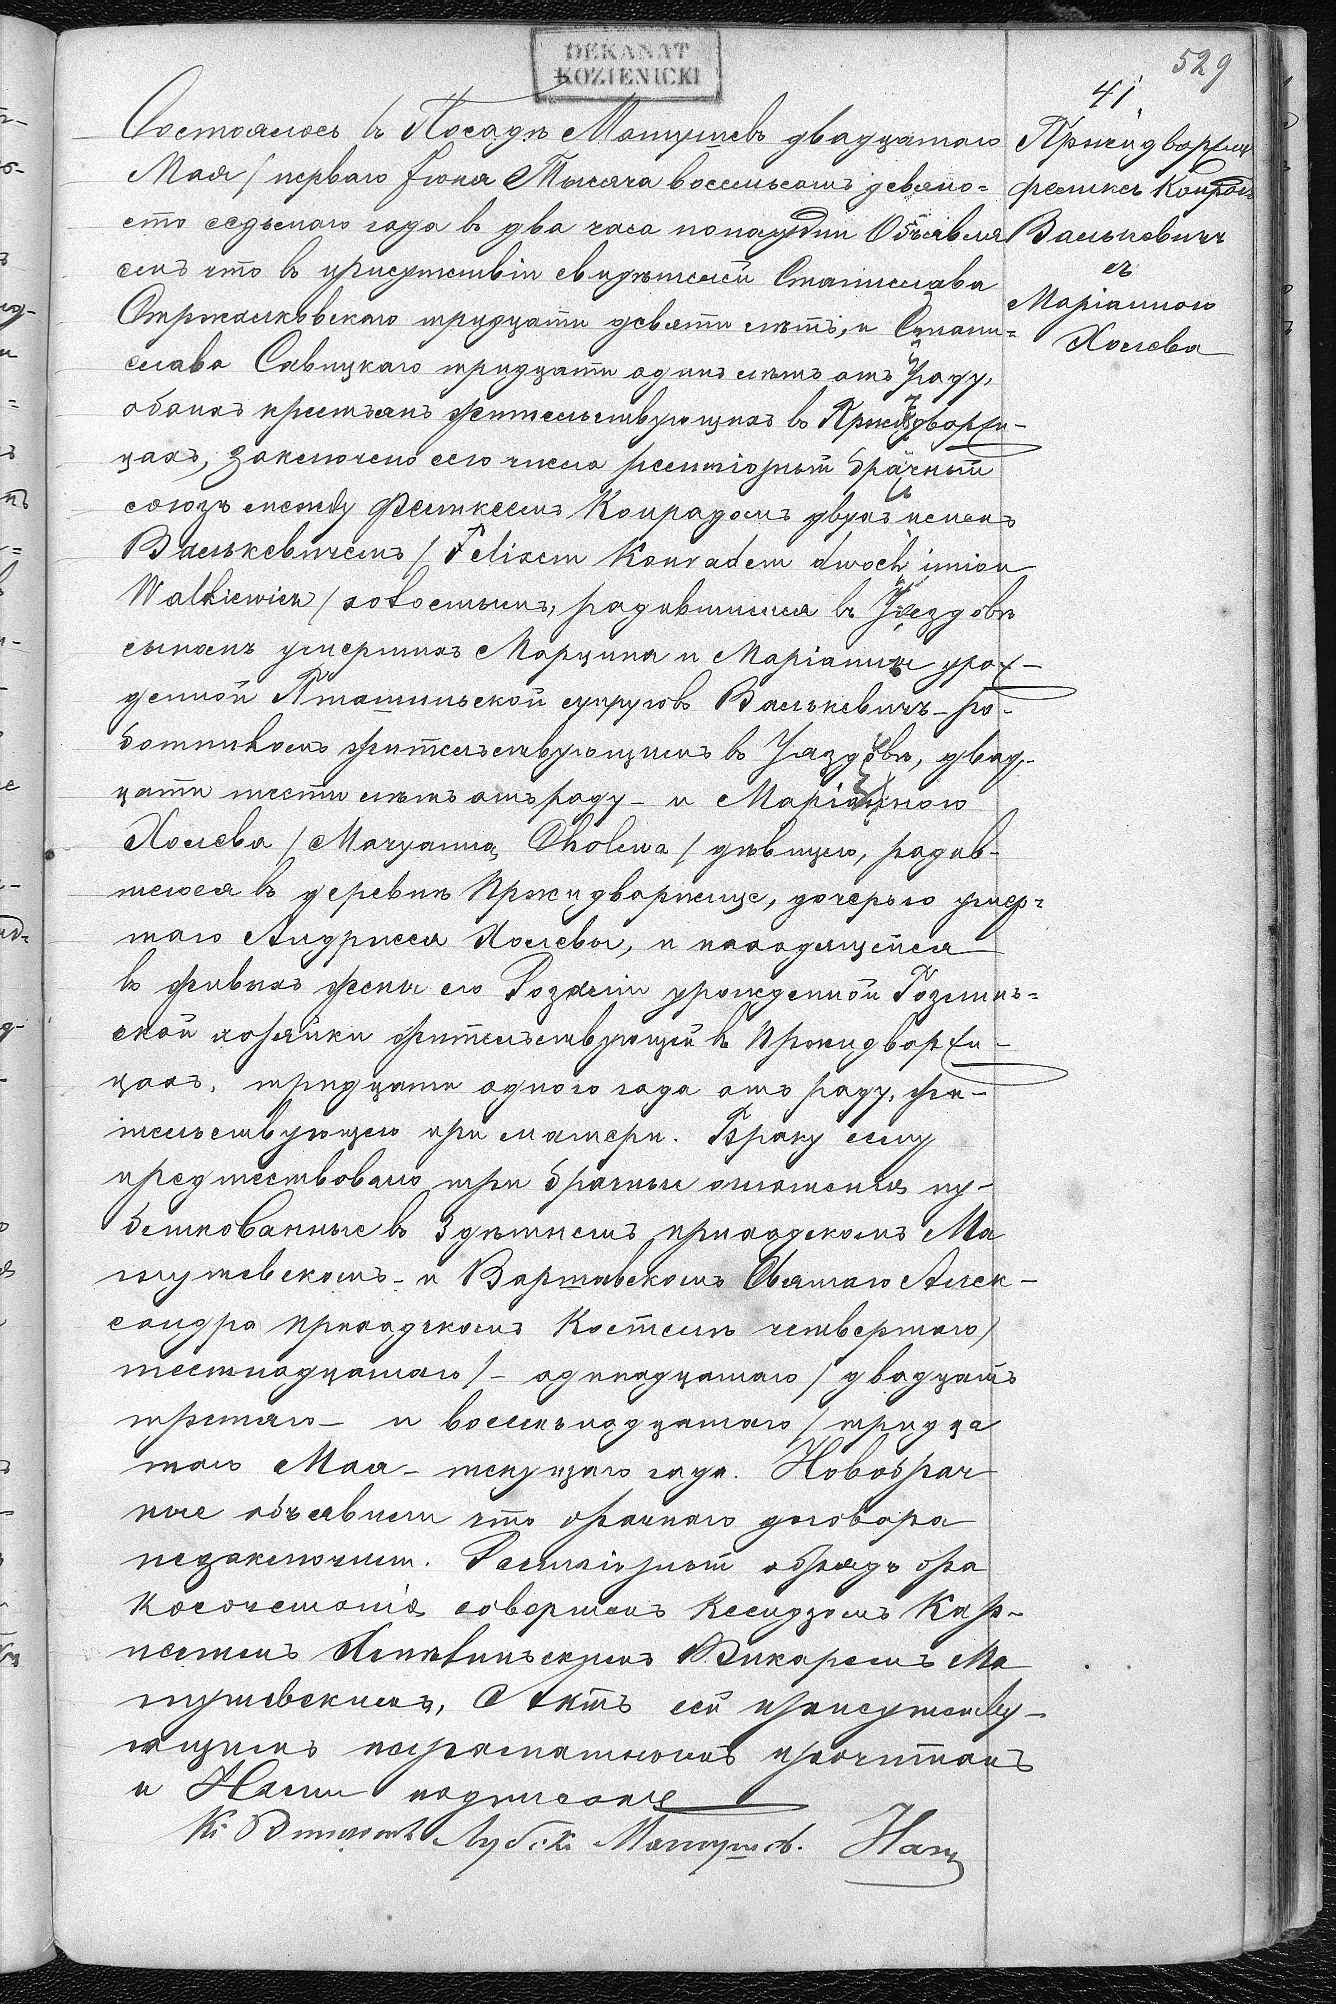 DEKANAT
KOZIENICKI
529
41.
Пржидворжице
Феликсъ Конрадъ
Валькевичъ
съ
Маріанною
Холева
Состоялось въ Посадѣ Магнушевѣ двадцатаго
Мая / перваго Іюня Тысяча восемьсотъ девяно=
сто седьмаго года въ два часа пополудни Объявля
емъ что въ присутствіи свидѣтелей Станислава
Стржалковскаго тридцати девяти лѣтъ, и Стани=
слава Савицкаго тридцати одинъ лѣтъ отъ роду,
обоихъ крестьянъ жительствующихъ въ Пржидворжи-
цахъ, заключенъ сего числа религіозный брачный
союзъ между Феликсемъ Конрадомъ двухъ именъ
Валькевичемъ / Felixem Konradem dwoch imion
Walkiewicz / холостымъ, родившимся въ Уяздовѣ
сыномъ умершихъ Марцина и Маріанны урож-
денной супруговъ Валькевичъ - ро-
ботникомъ жительствующимъ въ Уяздовѣ, двад-
цати шести лѣтъ отъ роду - и Маріанною
Холева / Maryanną Cholewa / дѣвицею, родив-
шеюся въ деревнѣ Пржидворжице, дочерью умер=
шаго Андржея Холевы, и находящейся
въ живыхъ жены его Розаліи урожденной
ской хозяйки жительствующей въ Пржидворжи-
цахъ, тридцати одного года отъ роду, жи-
тельствующею при матери. Браку сему
предшествовало три брачные оглашенія пу-
бликованные въ Здѣшнемъ приходскомъ Ма
гнушевскомъ - и Варшавскомъ Святаго Алек-
сандра приходскомъ Костелѣ четвертаго /
шестнадцатаго / - одинадцатаго / двадцать
третяго - и восемьнадцатаго / тридца
таго Мая - текущаго года. Новобрач
ные объявили что брачнаго договора
незаключили. Религіозный обрядъ бра
косочетанія совершенъ Ксендзомъ
Викаремъ Ма
гнушевскимъ, Актъ сей присутству-
ющимъ неграматнымъ прочитанъ
и Нами подписанъ